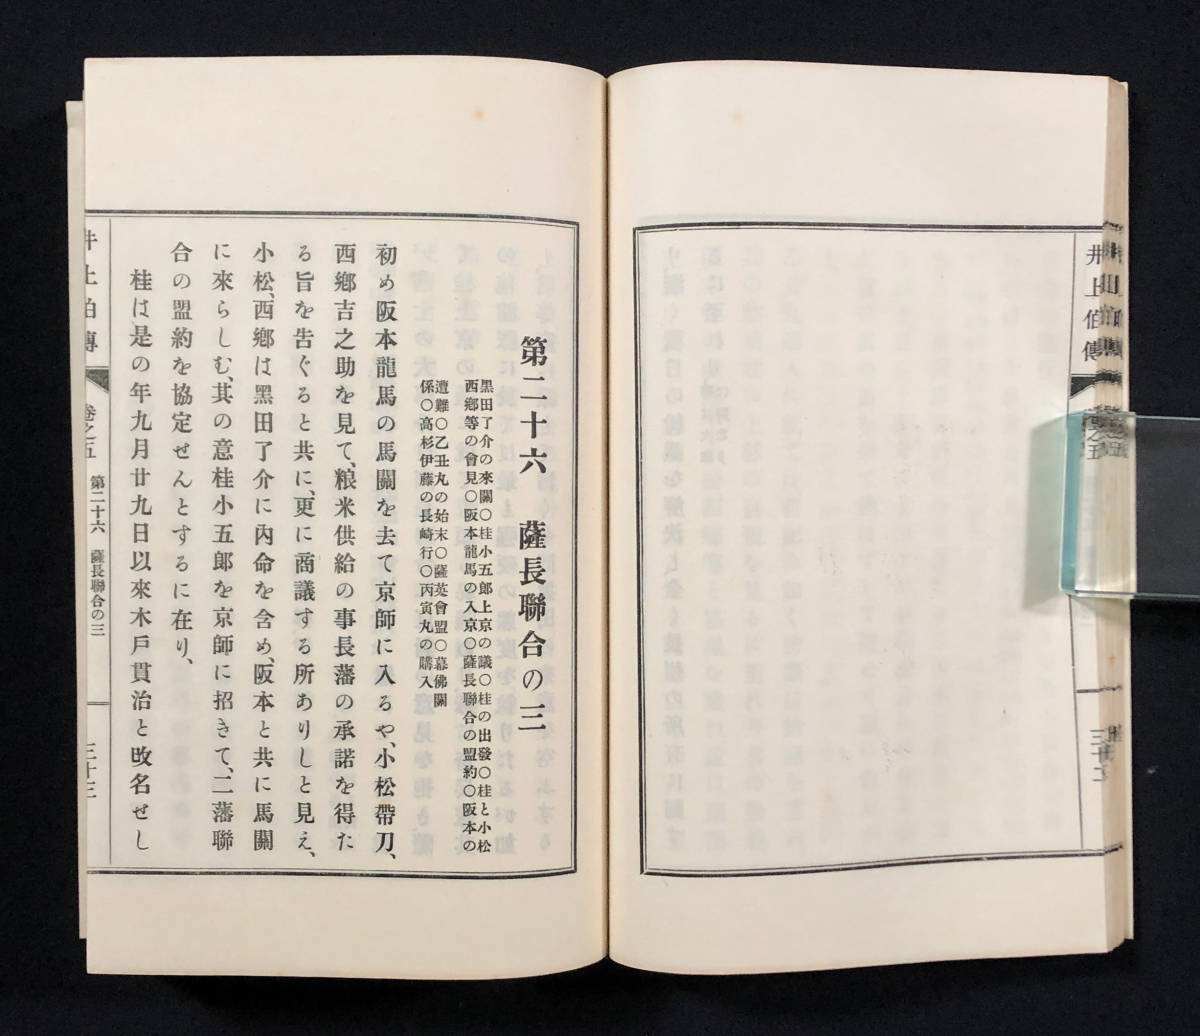 井上伯傳
卷之五
三十二
第二十六 薩長聯合の三
黑田了介の來關〇桂小五郎上京の議〇桂の出發〇桂と小松
西鄕等の會見〇阪本龍馬の入京〇薩長聯合の盟約〇阪本の
遭難〇乙丑丸の始末〇薩英會盟〇幕佛關
係〇高杉伊藤の長崎行〇丙寅丸の購入
初め阪本龍馬の馬關を去て京師に入るや、小松帶刀、
西鄕吉之助を見て、粮米供給の事長藩の承諾を得た
る旨を告ぐると共に、更に商議する所ありしと見え、
小松、西鄕は黑田了介に內命を含め、阪本と共に馬關
に來らしむ、其の意桂小五郎を京師に招きて、二藩聯
合の盟約を協定せんとするに在り、
桂は是の年九月廿九日以來木戶貫治と改名せし
井上伯傳
卷之五
第二十六 薩長聯合の三
三十三